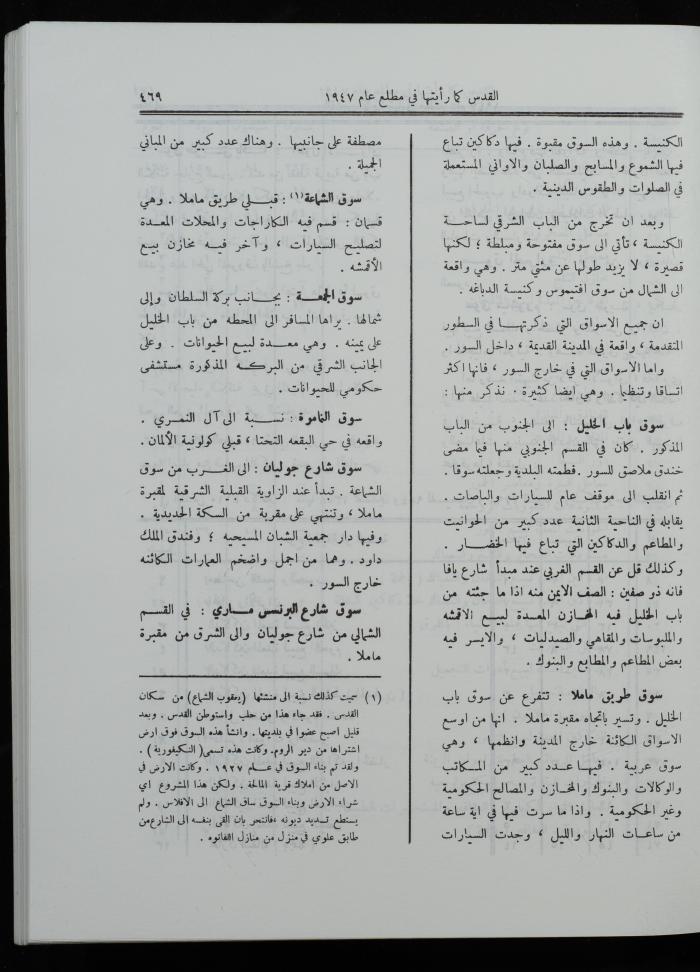 القدس كما رأيتها في مطلع عام ١٩٤٧
٤٦٩
الكنيسة . وهذه السوق مقبوة . فيها دكاكين تباع
فيها الشموع والمسابح والصلبان والاواني المستعملة
في الصلوات والطقوس الدينية .
وبعد ان تخرج من الباب الشرقي لساحـة
الكنيسة ، تأتي الى سوق مفتوحة ومبلطة ؛ لكنها
قصيرة ، لا يزيد طولها عن مئتي متر . وهي واقعة
الى الشمال من سوق افتيموس وكنيسة الدباغه .
ان جميع الاسواق التي ذكرتهـا في السطور
المتقدمة ، واقعة في المدينة القديمة ، داخل السور .
واما الاسواق التي في خارج السور ، فانها اكثر
اتساقا وتنظيما . وهي ايضا كثيرة . نذكر منها :
سوق باب الخليل : الى الجنوب من الباب
المذكور . كان في القسم الجنوبي منها فيما مضى
خندق ملاصق للسور . فطمته البلدية وجعلته سوقا .
ثم انقلب الى موقف عام للسيارات والباصات .
يقابله في الناحية الثانية عدد كبير من الحوانيت
والمطاعم والدكاكين التي تباع فيها الخضـار .
وكذلك قل عن القسم الغربي عند مبدأ شارع يافا
فانه ذو صفين : الصف الايمن منه اذا ما جئته من
باب الخليل فيه المخازن المعدة لبيع الاقمشه
والملبوسات والمقاهي والصيدليات ، والايسر فيه
بعض المطاعم والمطابع والبنوك .
سوق طريق ماملا : تتفرع عن سوق باب
الخليل . وتسير باتجاه مقبرة ماملا . انها من اوسع
الاسواق الكائنة خارج المدينة وانظمها ، وهي
سوق عربية . فيهـا عدد كبير من المكاتب
والوكالات والبنوك والمخازن والمصالح الحكومية
وغير الحكومية . واذا ما سرت فيها في اية ساعة
من ساعات النهار والليل ، وجدت السيارات
مصطفة على جانبيها . وهناك عدد كبير من المباني
الجميلة .
سوق الشماعة (١) : قبـلي طريق ماملا . وهي
قسمان : قسم فيه الكاراجات والمحلات المعدة
لتصليح السيارات ، وآخر فيـه مخازن بيـع
الأقمشه .
سوق الجمعـة : بجـانب بركة السلطان وإلى
شمالها . يراها المسافر الى المحطه من باب الخليل
على يمينه . وهي معـدة لبيع الحيوانات . وعلى
الجانب الشرقي من البركـه المذكورة مستشفى
حكومي للحيوانات .
سوق النمامرة : نسـبة الى آل النمري .
واقعه في حي البقعه التحتا ، قبلي كولونية الألمان .
سوق شارع جوليان : الى الغـرب من سوق
الشماعة . تبدأ عند الزاوية القبلية الشرقية لمقبرة
ماملا ، وتنتهي على مقربة من السكة الحديدية .
وفيها دار جمعية الشبان المسيحيه ؛ وفندق الملك
داود . وهما من اجمل واضخم العمارات الكائنه
خارج السور .
سوق شارع البرنسس مـاري : في القسـم
الشمالي من شارع جوليان والى الشرق من مقبرة
ماملا .
(١) سميت كذلك نسبة الى منشئها (يعقوب الشماع) من سكان
القدس . فقد جاء هذا من حلب واستوطن القدس . وبعد
قليل اصبح عضوا في بلديتها . وانشأ هذه السوق فوق ارض
اشتراها من دير الروم. وكانت هذه تسمى (النكيفورية) .
ولقد تم بناء السوق في عـام ١٩٢٧ . وكانت الارض في
الاصل من املاك قرية المالحة . ولكن هذا المشروع اي
شراء الارض وبناء السوق ساق الشماع الى الافلاس . ولم
يستطع تسديد ديونه ، فانتحر بان القى بنفسه الى الشارع من
طابق علوي في منزل من منازل